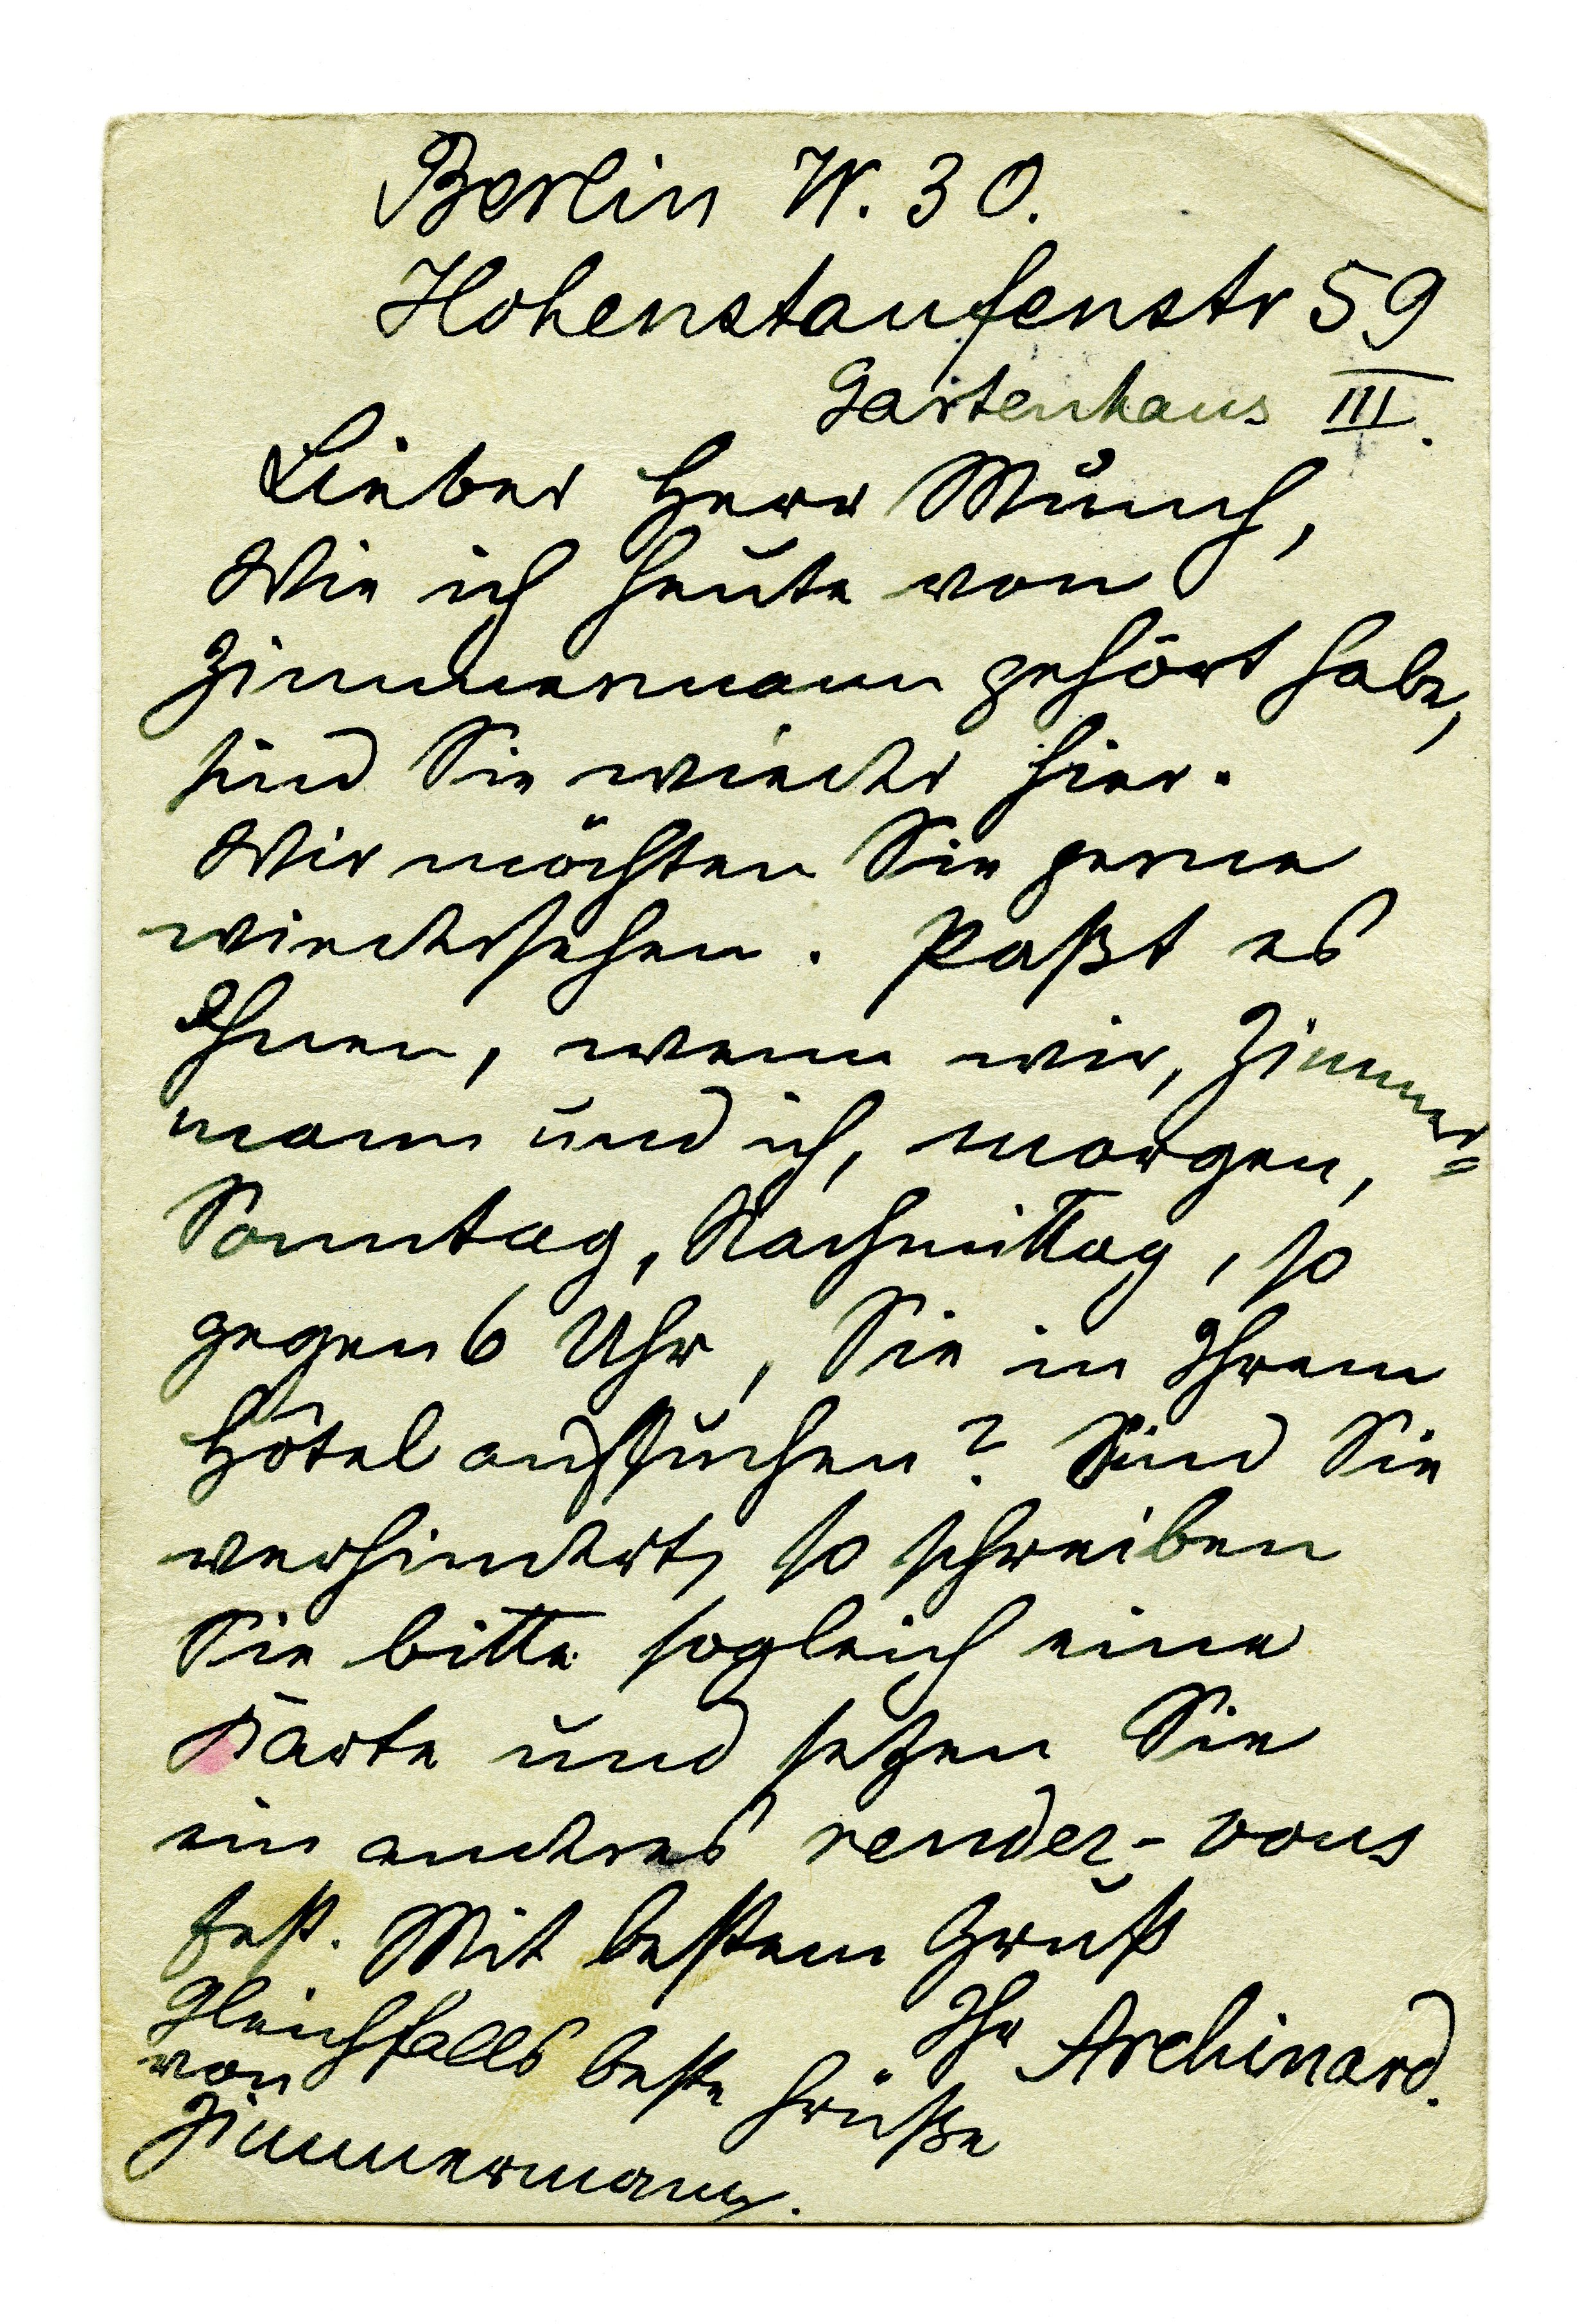 Berlin W. 30.
Hohenstaufenstr 59
Gartenhaus III.
Lieber Herr Munch,
Wie ich heute von
Zimmermann gehört habe,
sind Sie wieder hier.
Wir möchten Sie gerne
wiedersehen. Paßt es
Ihnen, wenn wir, Zimmer=
mann und ich, morgen,
Sonntag, Nachmittag, so
gegen 6 Uhr, Sie in Ihrem
Hôtel aufsuchen? Sind Sie
verhindert, so schreiben
Sie bitte sogleich eine
Karte und setzen Sie
ein andres rendez-vous
fest. Mit bestem Gruß
Ihr Archinard.
Gleichfalls beste Grüße
von
Zimmermann.